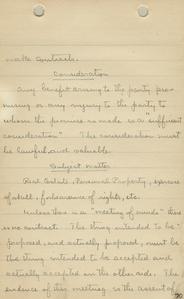 make Contracts.
Consideration
Any benefit arising to the party pro-
mising or any injury to the party to
whom the promise is made is a "sufficient
consideration". The consideration must
be lawful and valuable.
Subject Matter
Real Estate, Personal Property, exercise
of skill, forbearance of rights, etc.
Unless there is a "meeting of minds" there is
no contract. The thing intended to be
proposed, and actually proposed, must be
the thing intended to be accepted and
actually accepted on the other side. The
evidence of this meeting is the assent of